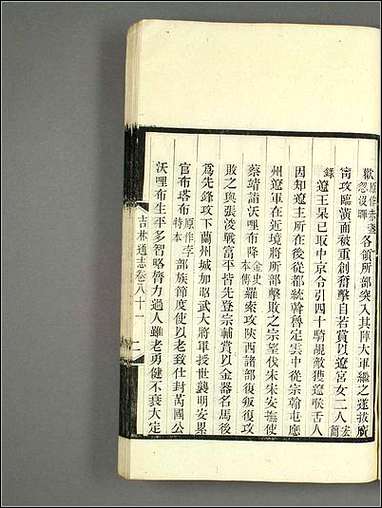 歡原作赤盞忽沒渾各領所部突入其陣大軍繼之遂拔廣
甯攻臨潢面被重創奮擊自若賞以遼宮女二人宏簡
錄遼王杲已取中京令引四十騎覘敵獲遼候舌人
因知遼主所在後從都統斡魯定雲中從宗翰屯應
州遼軍在近境將所部擊敗之宗望伐宋宋安撫使
蔡靖詣沃哩布降金史本傳羅索攻陝西諸部復叛復攻
敗之與張浚戰富平皆先登宗輔賞以金器名馬後
爲先鋒攻下蘭州城加昭武大將軍授世襲明安累
官布塔布原作孛特本部族節度使以老致仕封芮國公
沃哩布生平多智略膂力過人雖老勇健不衰大定
吉林通志卷八十一 二